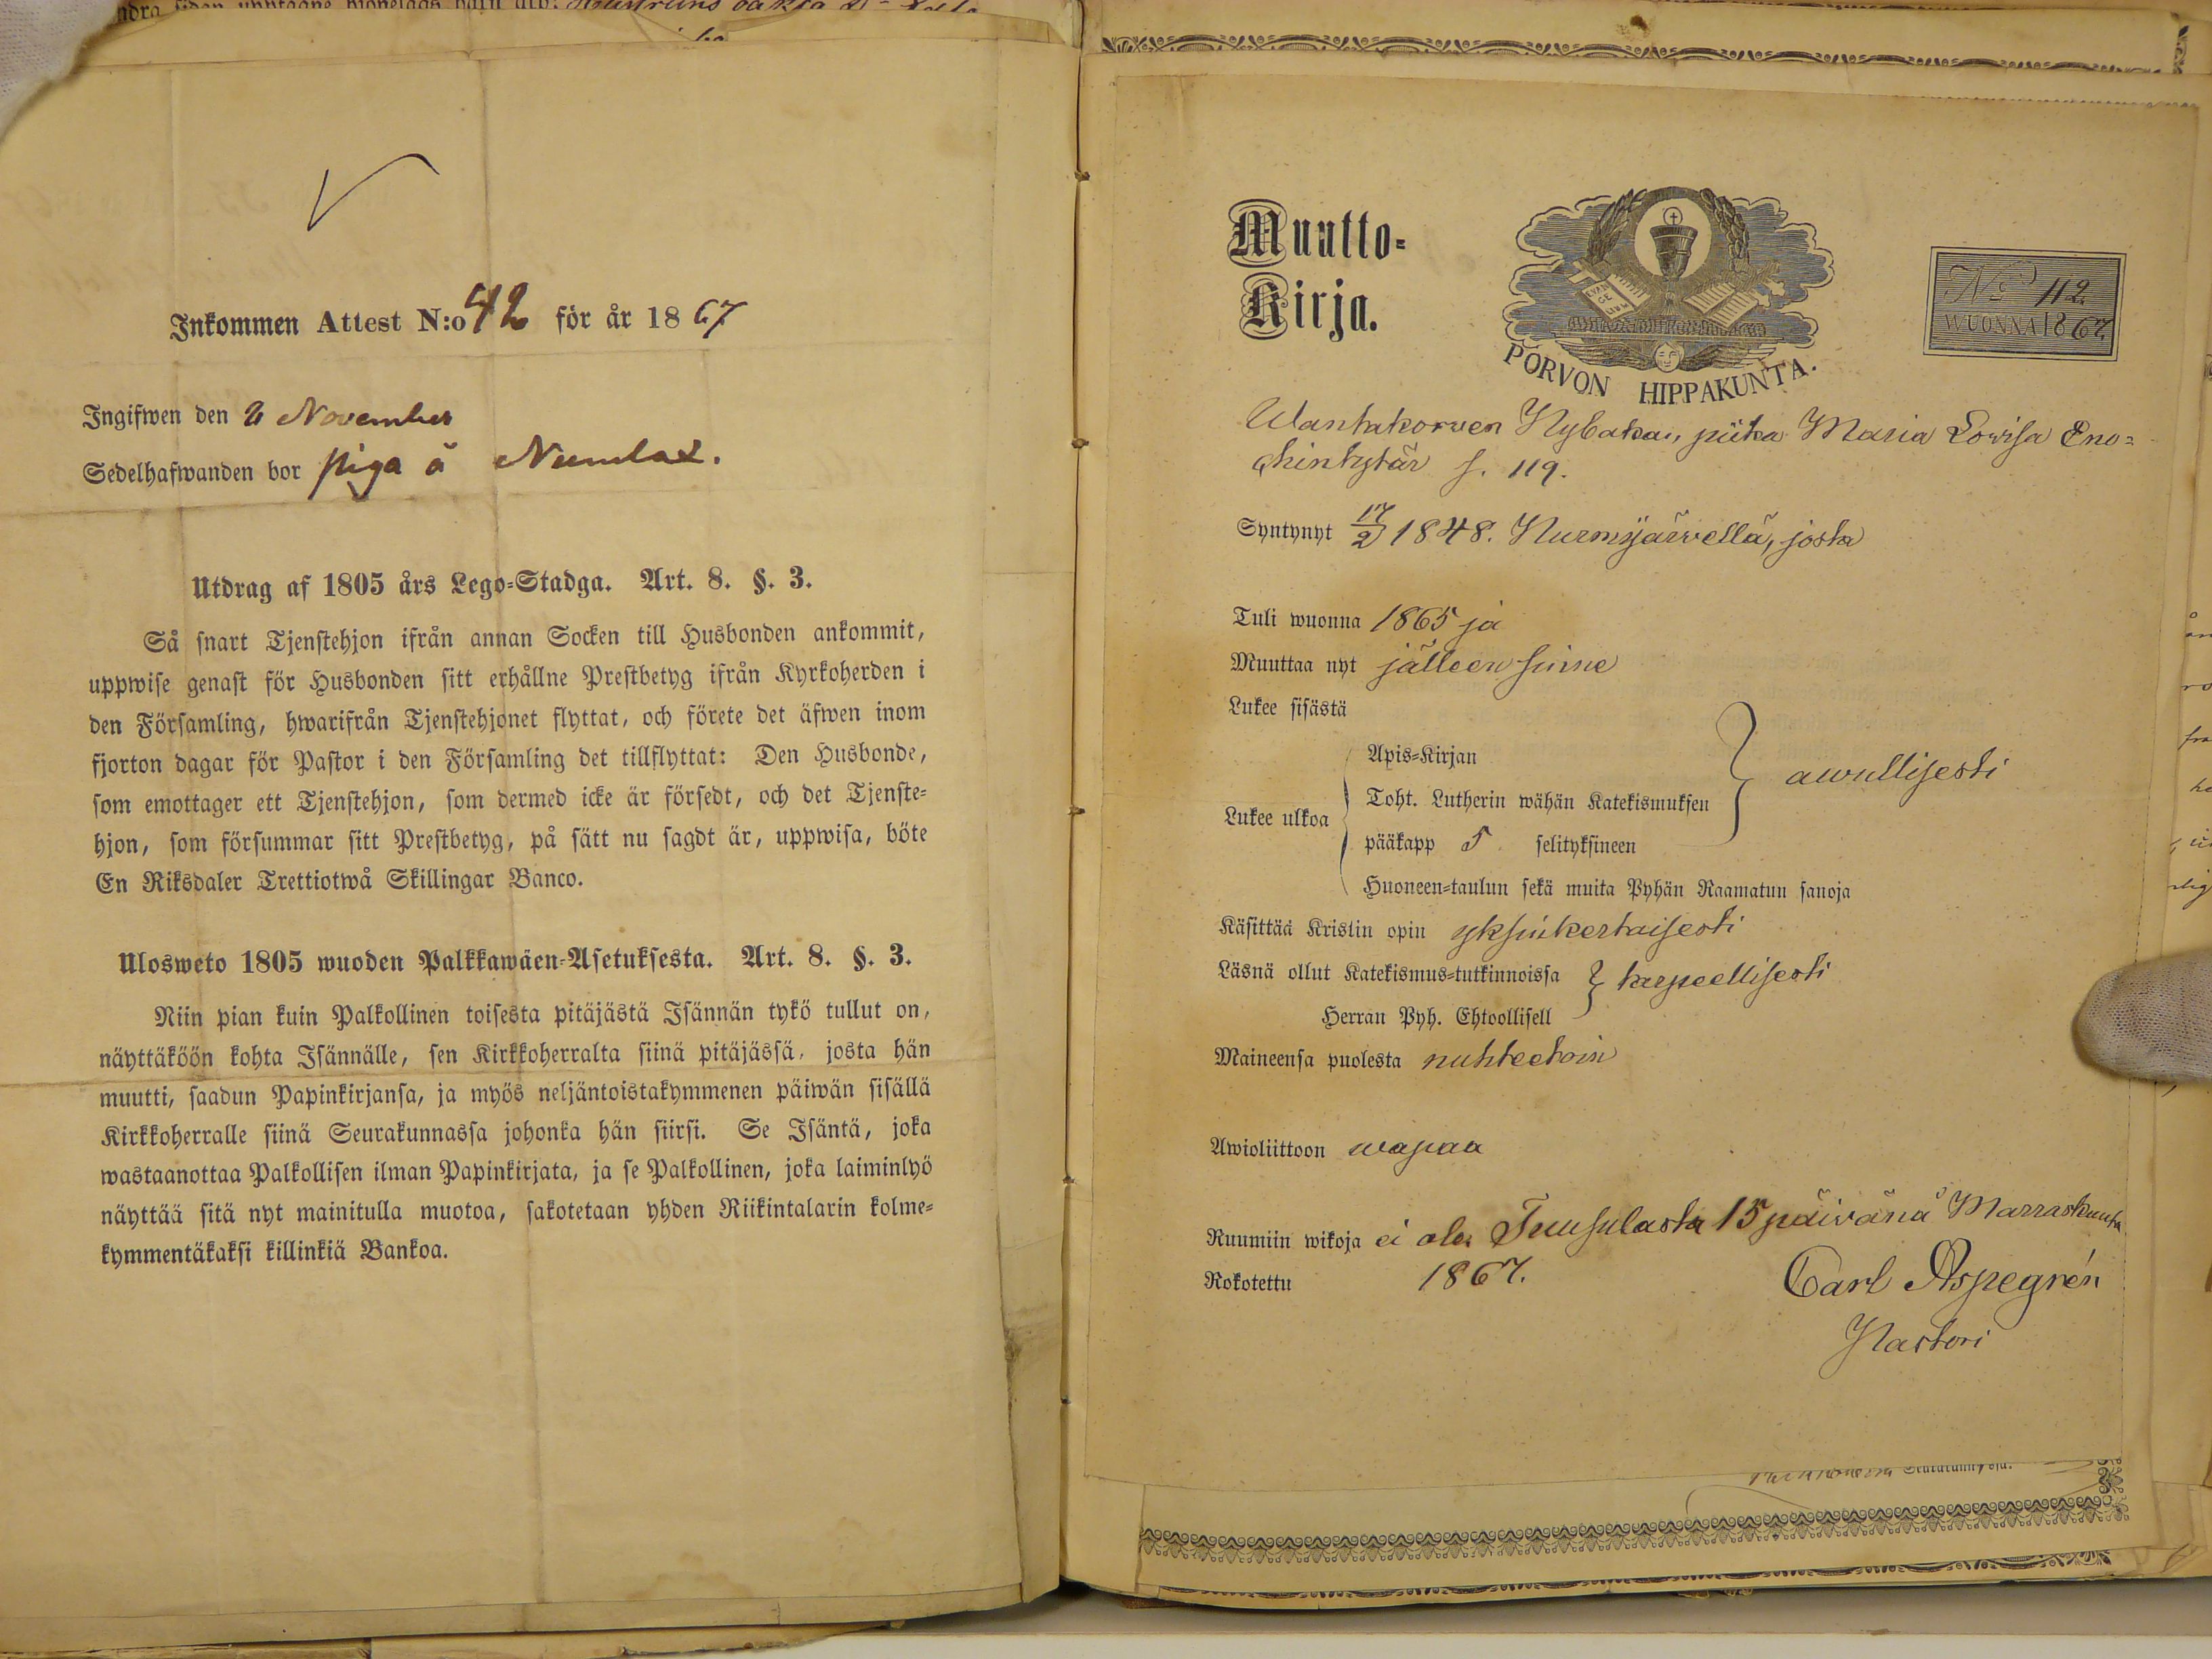 Inkommen Attest N:o 42 för år 1867
Ingifwen den 2 November
Sedelhafwanden bor piga å Numlax.
Utdrag af 1805 års Lego-Stadga. Art. 8. §. 3.
Så snart Tjenstehjon ifrån annan Socken till Husbonden ankommit,
uppwise genast för Husbonden sitt erhållne Prestbetyg ifrån Kyrkoherden i
den Församling, hwarifrån Tjenstehjonet flyttat, och förete det äfwen inom
fjorton dagar för Pastor i den Församling det tillflyttat: Den Husbonde,
som emottager ett Tjenstehjon, som dermed icke är försedt, och det Tjenste-
hjon, som försummar sitt Prestbetyg, på sätt nu sagdt är, uppwisa, böte
En Riksdaler Trettiotwå Skillingar Banco.
Ulosweto 1805 wuoden Palkkawäen-Asetuksesta. Art. 8. §. 3.
Niin pian kuin Palkollinen toisesta pitäjästä Isännän tykö tullut on,
näyttäköön kohta Isännälle, sen Kirkkoherralta siinä pitäjässä, josta hän
muutti, saadun Papinkirjansa, ja myös neljäntoistakymmenen päiwän sisällä
Kirkkoherralle siinä Seurakunnassa johonka hän siirsi. Se Isäntä, joka
wastaanottaa Palkollisen ilman Papinkirjata, ja se Palkollinen, joka laiminlyö
näyttää sitä nyt mainitulla muotoa, sakotetaan yhden Riikintalarin kolme-
kymmentäkaksi killinkiä Bankoa.
Muutto-
Kirja.
EVAN
GE
LIUM
PORVON HIPPAKUNTA.
No 112
WUONNA 1867.
Wantakorven Nybaka, piika Maria Lovisa Eno-
chintytär s. 119.
Syntynyt 17/2 1848. Nurmijärvellä, josta
Tuli wuonna 1865 ja
Muuttaa nyt jälleen sinne
Lukee sisästä
Apis-Kirjan
Lukee ulkoa Toht. Lutherin wähän Katekismuksen awullisesti
pääkapp 5 selityksineen
Huoneen-taulun sekä muita Pyhän Raamatun sanoja
Käsittää Kristin opin yksinkertaisesti
Läsnä ollut Katekismus-tutkinnoissa tarpeellisesti
Herran Pyh. Ehtoollisell
Maineensa puolesta nuhteetoin
Awioliittoon wapaa
Ruumiin wikoja ei ole. Tuusulasta 15 päivänä Marraskuuta
Rokotettu 1867.
Carl Aspegrén
Pastori